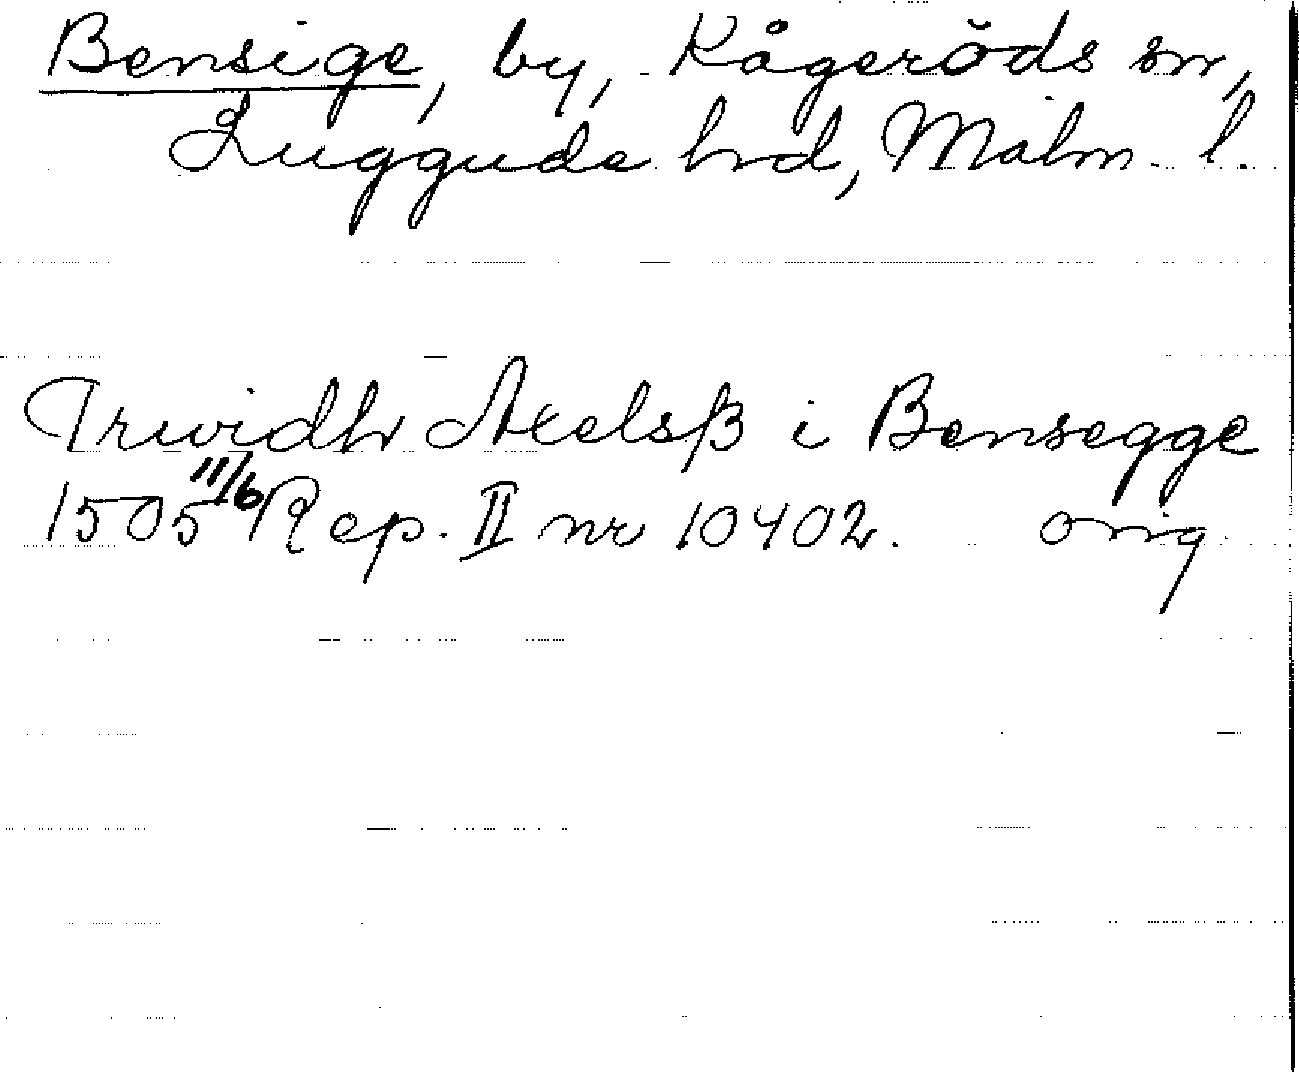 Bensige, by, Kågeröds sn,
Luggude hrd, Malm. l.
Truvidh Axelsß i Bensegge
1505 11/6 Rep. II nr 10402. orig